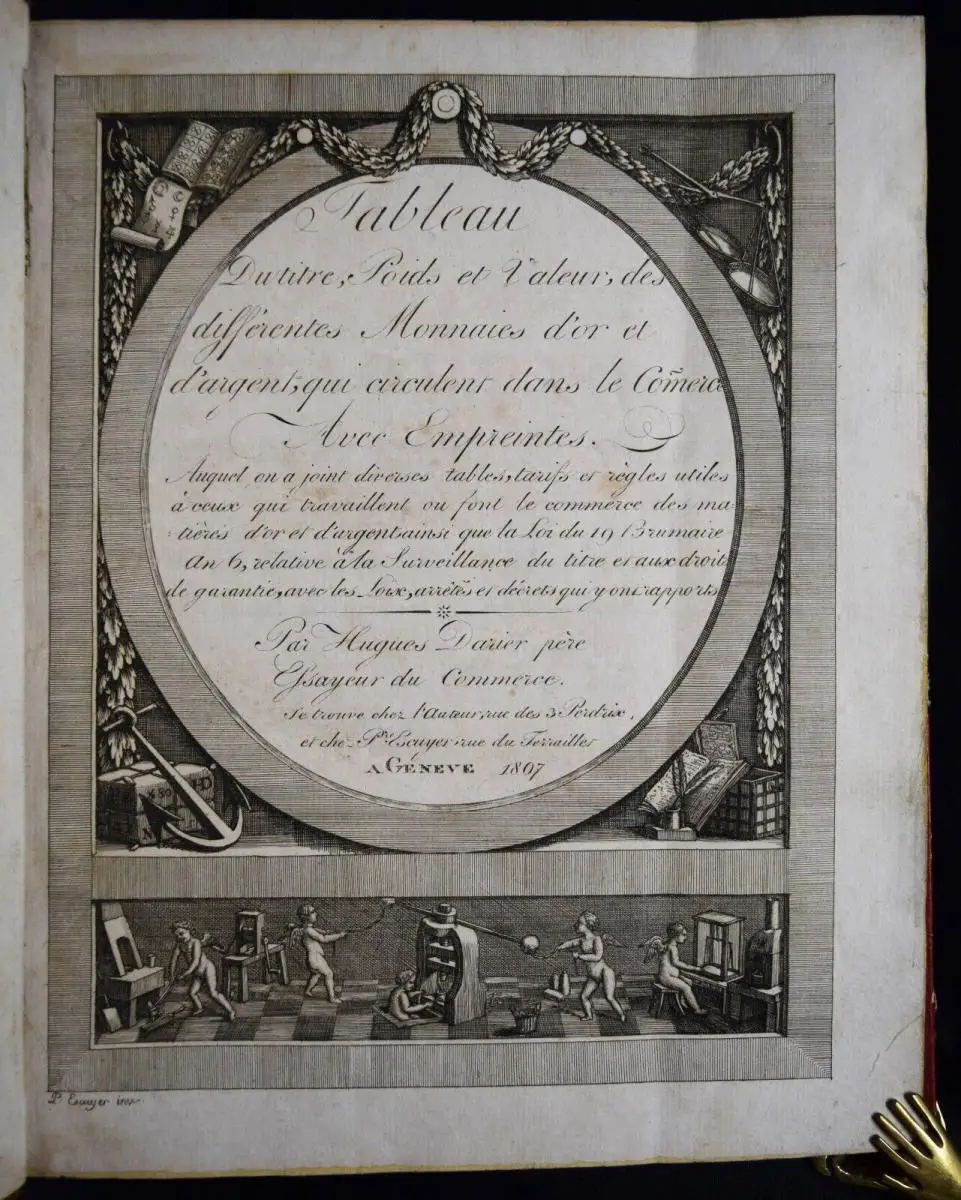 Tableau
Du titre, Poids et Valeur, des
différentes Monnaies d'or et
d'argent, qui circulent dans le Com̃erce
Avec Empreintes.
Auquel on a joint diverses tables, tarifs et règles utiles
à ceux qui travaillent ou font le commerce des ma:
:tières d'or et d'argent ainsi que la Loi du 19 Brumaire
An 6, relative à la Surveillance du titre et aux droits
de garantie, avec les Loix, arrêtés et décrets qui y ont rapports
Par Hugues Darier père
Essayeur du Commerce.
Se trouve chez l'Auteur, rue des 3 Perdrix,
et che- Pre Escuyer rue du Ferrailler
A GÉNEVE 1807
P. Escuyer inv.